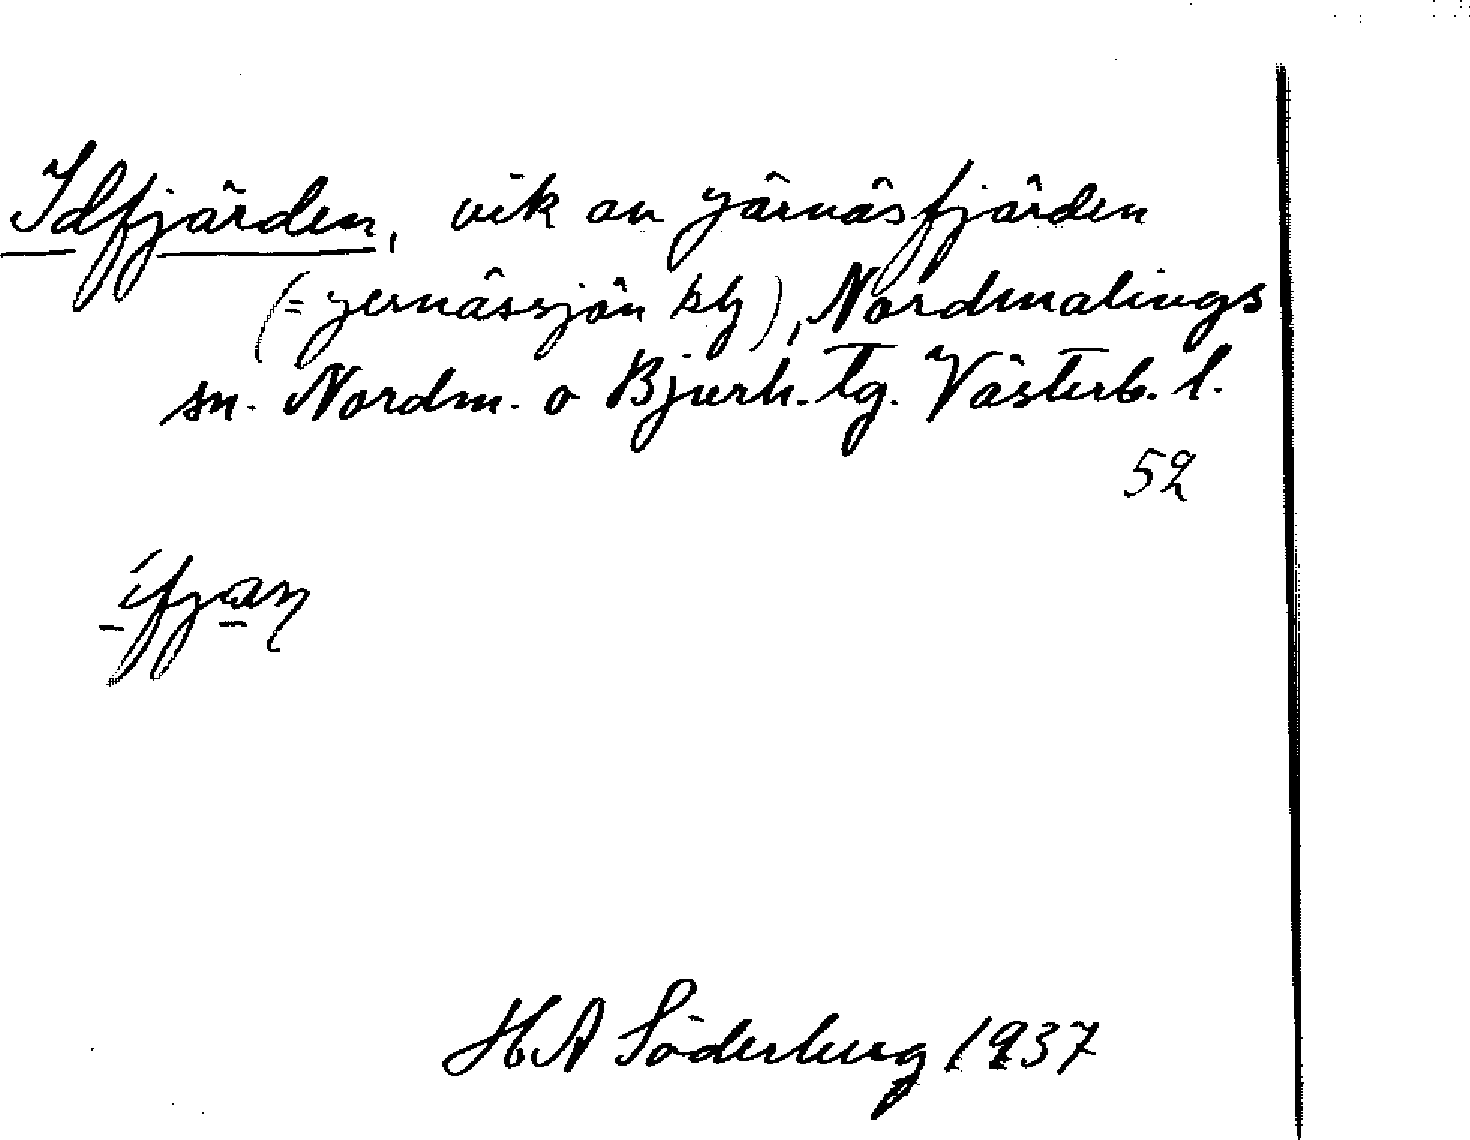 Idfjärden, vik av Järnäsfjärden
(= Jernässjön kb), Nordmalings
sn. Nordm. o Bjurh. tg. Västerb. l.
52
H A Söderberg 1937